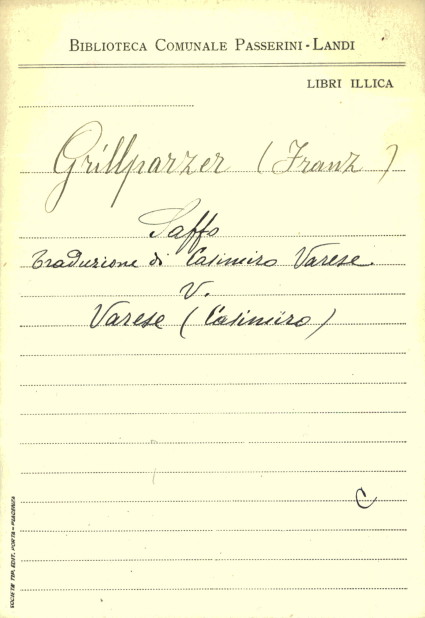 BIBLIOTECA COMUNALE PASSERINI-LANDI
LIBRI ILLICA
Grillparzer (Franz)
Saffo
traduzione di Casimiro Varese.
V.
Varese (Casimiro)
C
SOCIETÀ TIP. EDIT. PORTA - PIACENZA